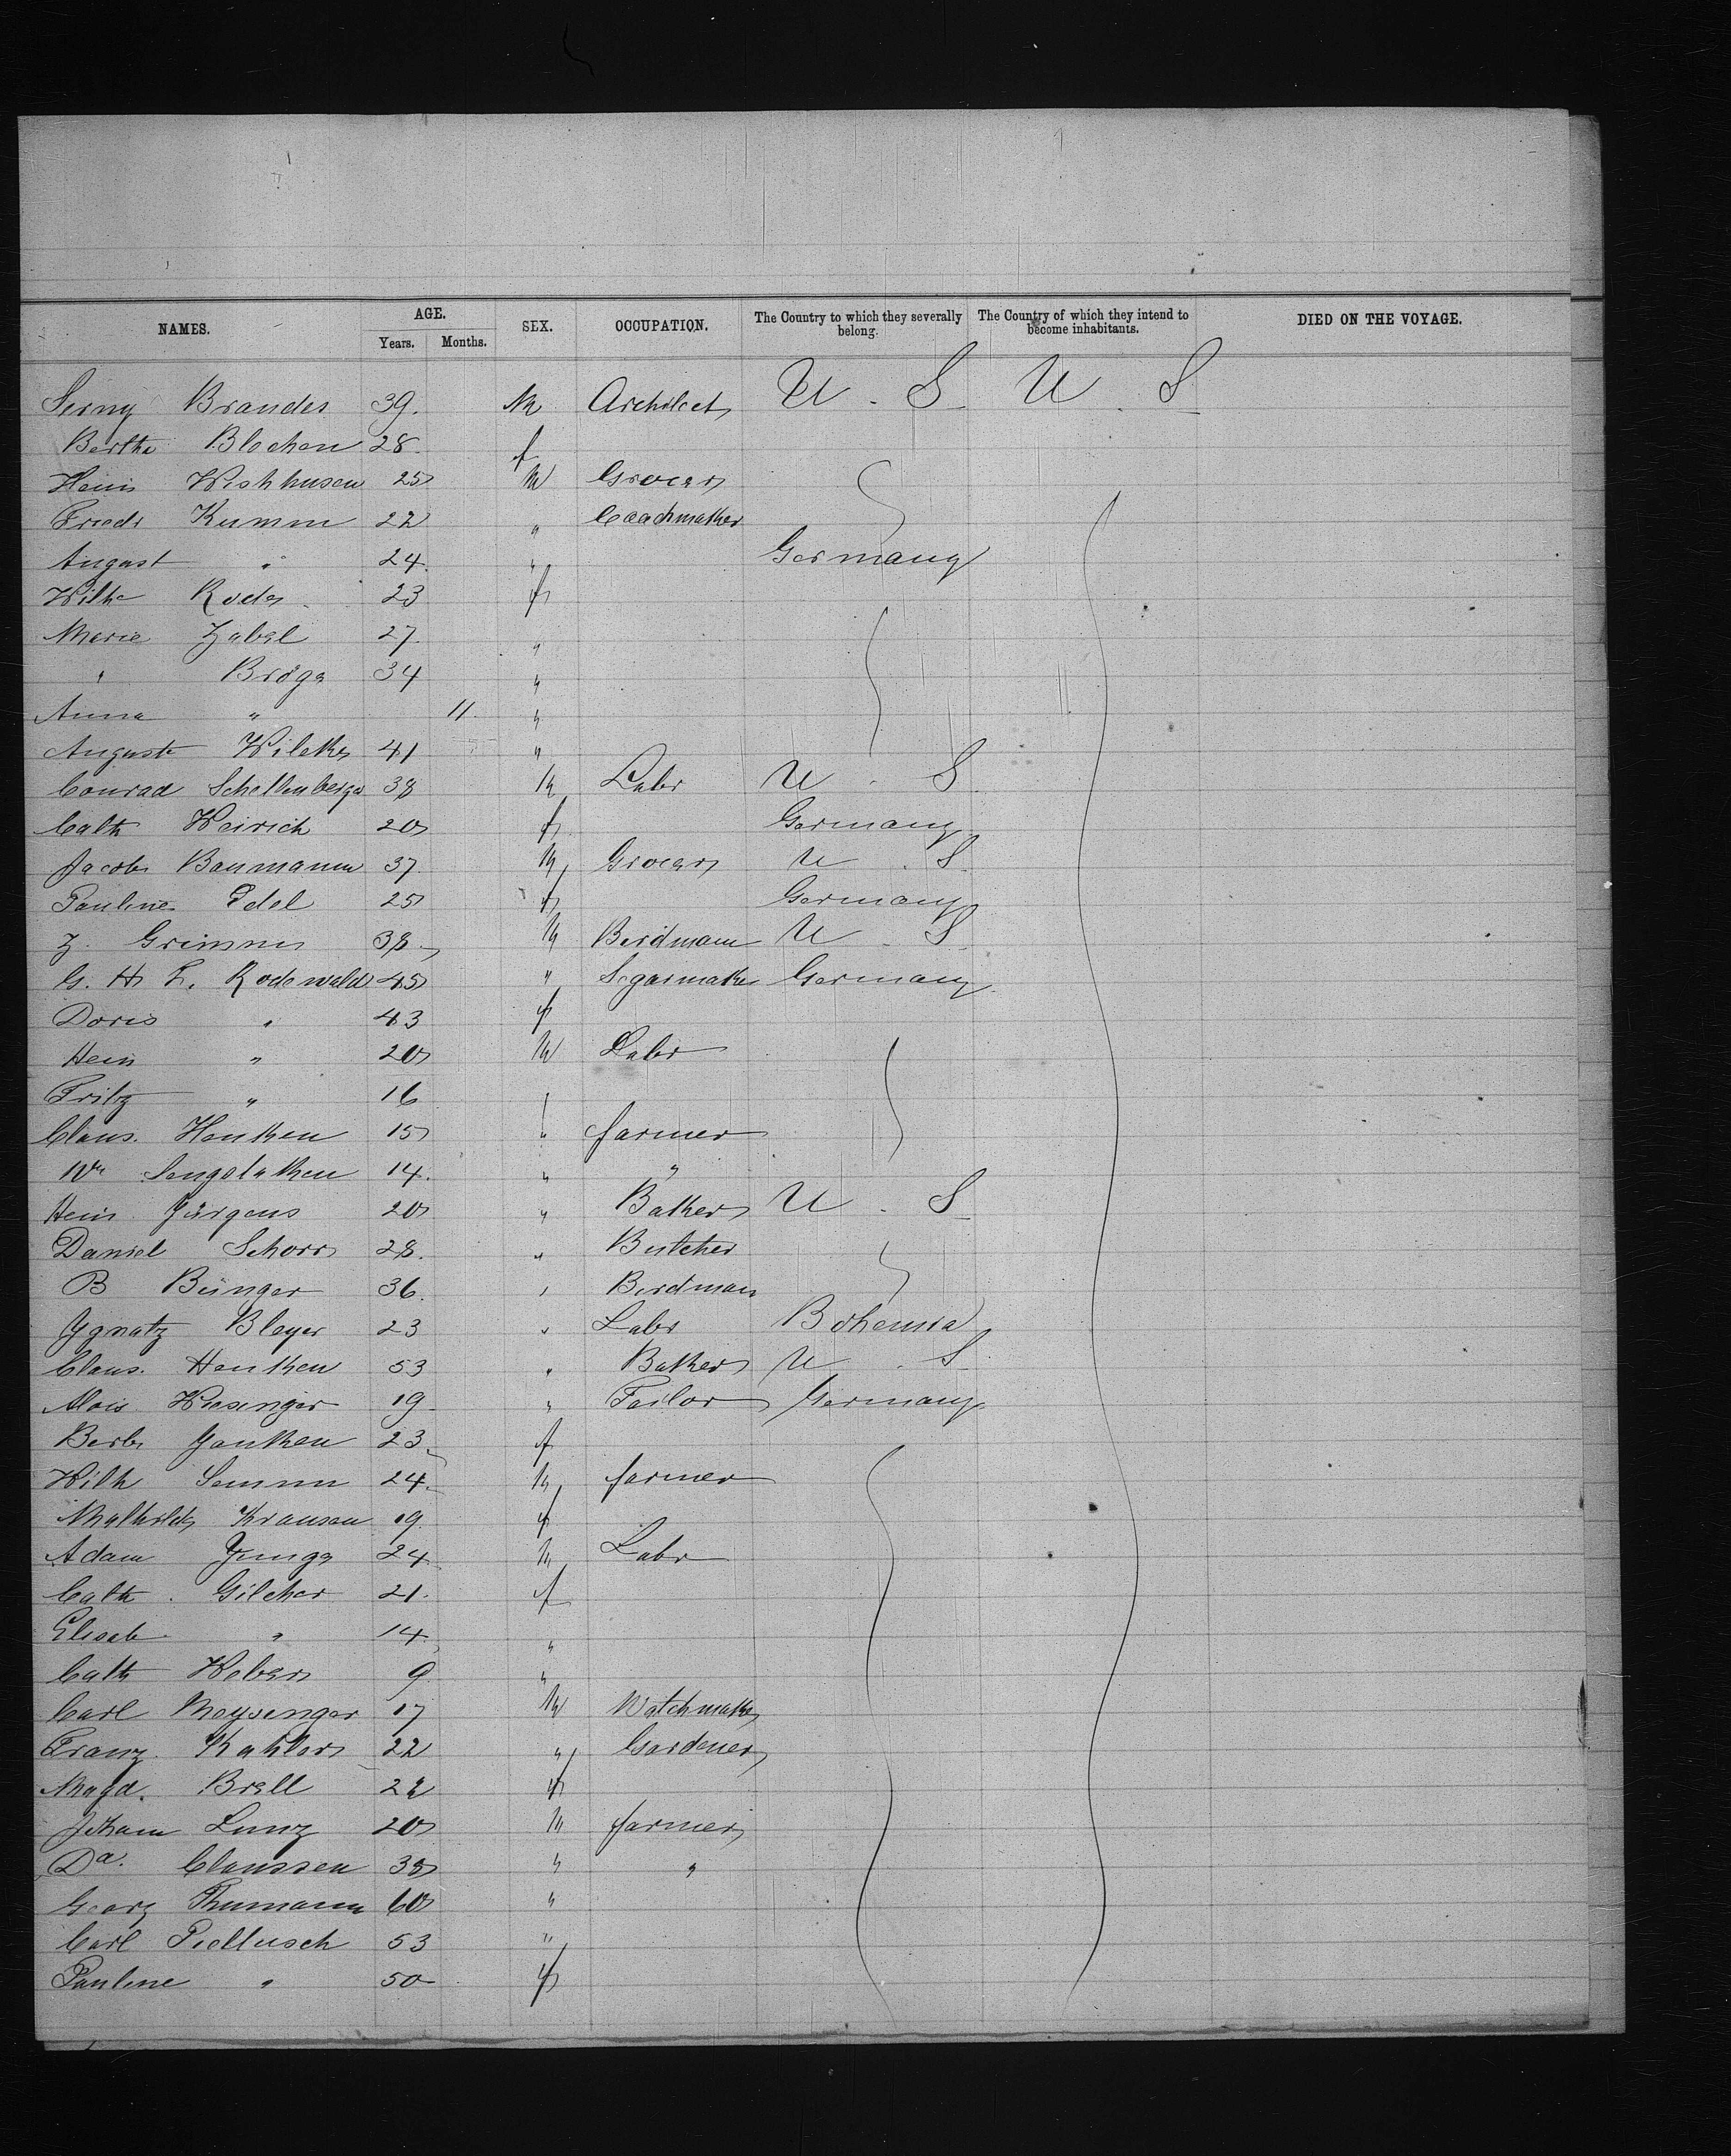 NAMES. AGE. SEX. OCCUPATION. The Country to which they severally belong. The Country of which they intend to become inhabitants. DIED ON THE VOYAGE.
Years. Months.
Brandes 39. M Architect U. S. U. S.
Berthe Blochen 28 f
Heinr Wishhusen 25 M Grocer
Friedr Kumm 22 " Coachmaker
August " 24. " Germany
Wilhe Rode 23 f
Marie Zabel 27. "
" Bröge 34 "
Anna " 11. "
Auguste Wilcke 41 "
Conrad Schellenberger 38 M Labr U. S
Cath Weirich 20 f Germany
Jacob Baumann 37 M Grocer U. S.
Pauline Edel 25 f Germany
Z. Grimm 38. M Birdmann U. S.
G. H L. Rodewald 45 " Segarmaker Germany
Doris " 43 f
Hein " 20 M Labr
Fritz " 16 "
Claus. Henken 15 " farmer
Wm Sengelaken 14. " "
Hein Jürgens 20 " Baker U. S
Daniel Schorr 28. " Butcher
B Bünger 36. " Birdman
Ygnatz Bleyer 23 " Labr Bohemia
Claus. Henken 53 " Baker U. S
Alois Wiesinger 19 " Tailor Germany
Barb Janken 23 f
Wilh Semm 24. M farmer
Mathilde Krausen 19 f
Adam Junge 24 M Labr
Cath. Gilcher 21. f
Elisab " 14 "
Cath Weber 9 "
Carl Meysenger 17 M Watchmaker
Franz Kahler 22 " Gardener
Magd. Brell 22 f
Johann Lunz 20 M farmer
Da. Claussen 38 " "
Georg Thumann 60 "
Carl Pieltusch 53 "
Pauline " 50 f